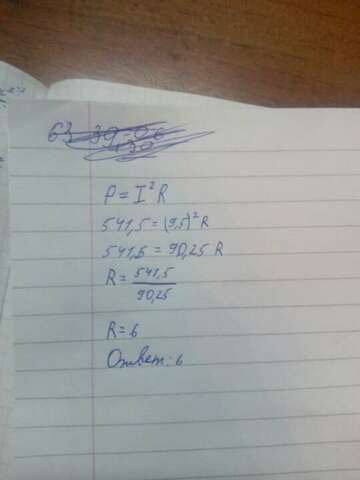 P = I² R
541,5 = (9,5)² R
541,5 = 90,25 R
R = 541,5 / 90,25
R = 6
Ответ: 6